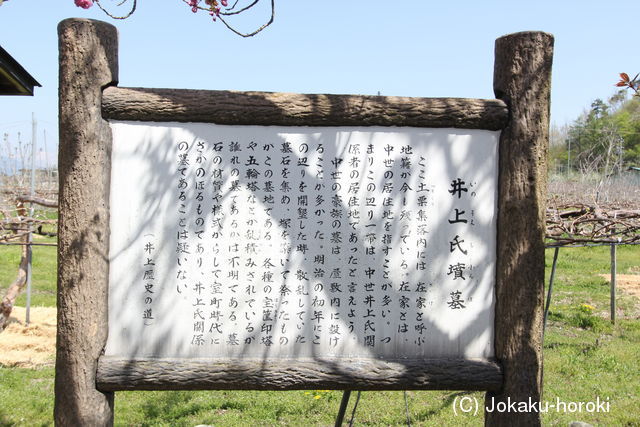 井上氏墳墓
ここ土栗集落内には、在家と呼ぶ
地籍が今も残っている。在家とは、
中世の居住地を指すことが多い。つ
まりこの辺り一帯は、中世井上氏関
係者の居住地であったと言えよう。
中世の豪族の墓は、屋敷内に設け
ることが多かった。明治の初年にこ
の辺りを開墾した時、散乱していた
墓石を集め、塚を築いて祭ったもの
がこの墓地である。各種の宝篋印塔
や五輪塔などが組積みされているが
誰れの墓であるかは不明である。墓
石の材質や様式からして室町時代に
さかのぼるものであり、井上氏関係
の墓であることは疑いない。
（井上歴史の道）
(C) Jokaku-horoki